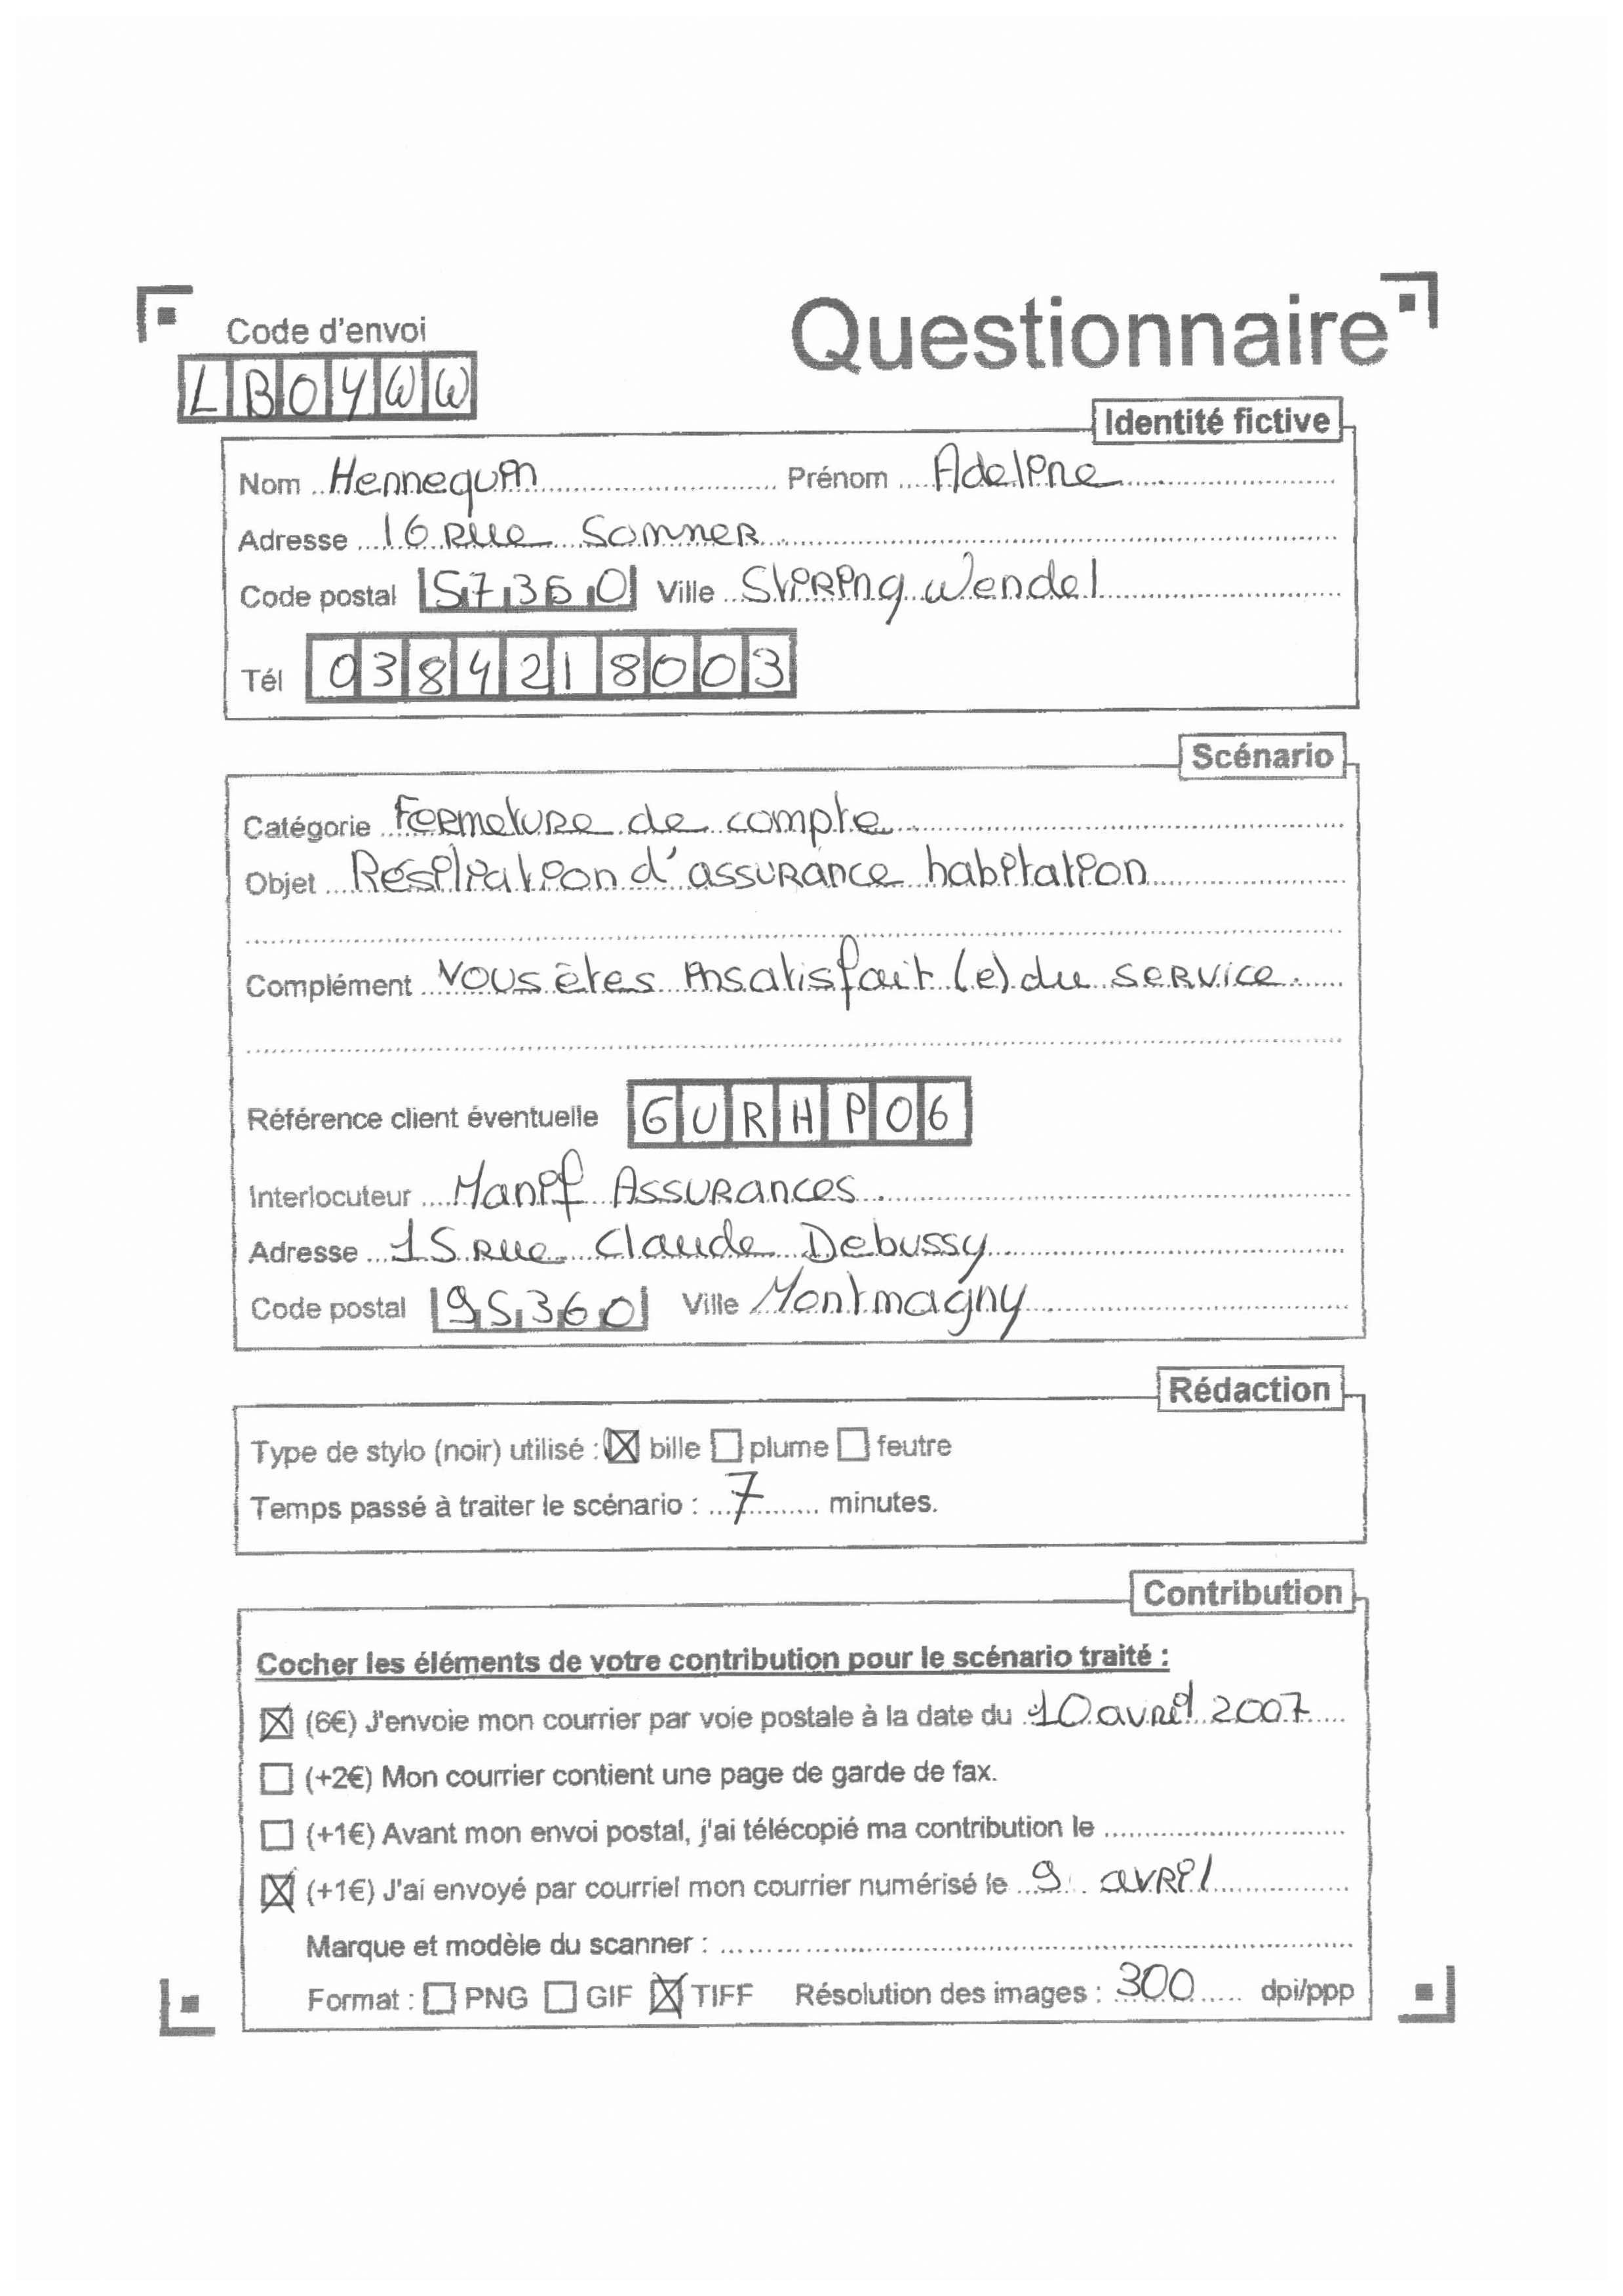 Code d'envoi
Questionnaire
LBOYWW
Identité fictive
Nom Hennequin Prénom Adeline
Adresse 16 Rue Sommer
Code postal 57350 Ville Stiring Wendel
Tél 0384218003
Scénario
Catégorie Fermeture de compte
Objet Résiliation d'assurance habitation
Complément Vous êtes insatisfait(e) du service.
Référence client éventuelle GURHP06
Interlocuteur Manif Assurances.
Adresse 15 Rue Claude Debussy
Code postal 95360 Ville Montmagny
Rédaction
Type de stylo (noir) utilisé : ☒ bille ☐ plume ☐ feutre
Temps passé à traiter le scénario : 7 minutes.
Contribution
Cocher les éléments de votre contribution pour le scénario traité :
☒ (6€) J'envoie mon courrier par voie postale à la date du 10 avril 2007
☐ (+2€) Mon courrier contient une page de garde de fax.
☐ (+1€) Avant mon envoi postal, j'ai télécopié ma contribution le
☒ (+1€) J'ai envoyé par courriel mon courrier numérisé le 9 avril
Marque et modèle du scanner :
Format : ☐ PNG ☐ GIF ☒ TIFF Résolution des images : 300 dpi/ppp